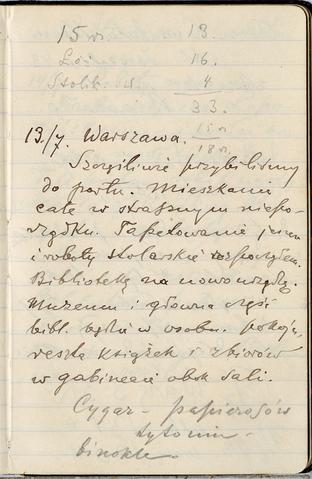 15 n. 13
Lóż 16.
Stolik. 4 4
33.
15 n
18 n.
13/7. Warszawa.
Szczęśliwie przybiliśmy
do portu. Mieszkanie
całe w strasznym niepo-
rządku. Tapetowanie
i roboty stolarskie rozpocząłem.
Bibliotekę na nowo urządzę.
Muzeum i główna część
bibl. będzie w osobn. pokoju,
reszta książek i zbiorów
w gabinecie obok sali.
Cygar - papierosów
tytoniu -
binokle.